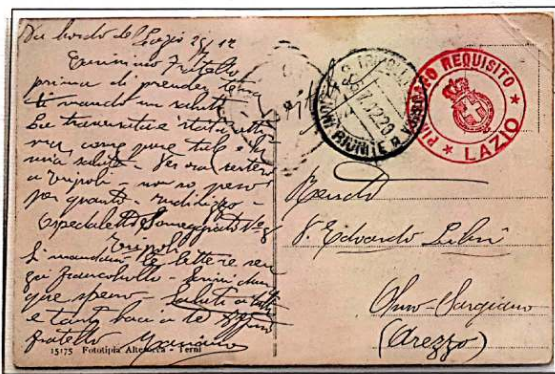 Da bordo del Lazio 25/12
Carissimo fratello
prima di prender terra
ti mando un saluto
La traversata è stata
come pure tale è la
mia salute - Per ora resterò
a Tripoli - non so però
per quanto - indirizzo -
Ospedaletto Someggiato N. 8
Tripoli
Si mandano le lettere sen
za francobollo - scrivi dun
que spero - Saluti a tutti
e tanti baci a te
fratello
15175 Fototipia Alterocca - Terni
TRIPOLI
RIUNITE
PIROSCAFO REQUISITO
★ LAZIO ★
Edoardo
Olmo - Sargiano
(Arezzo)